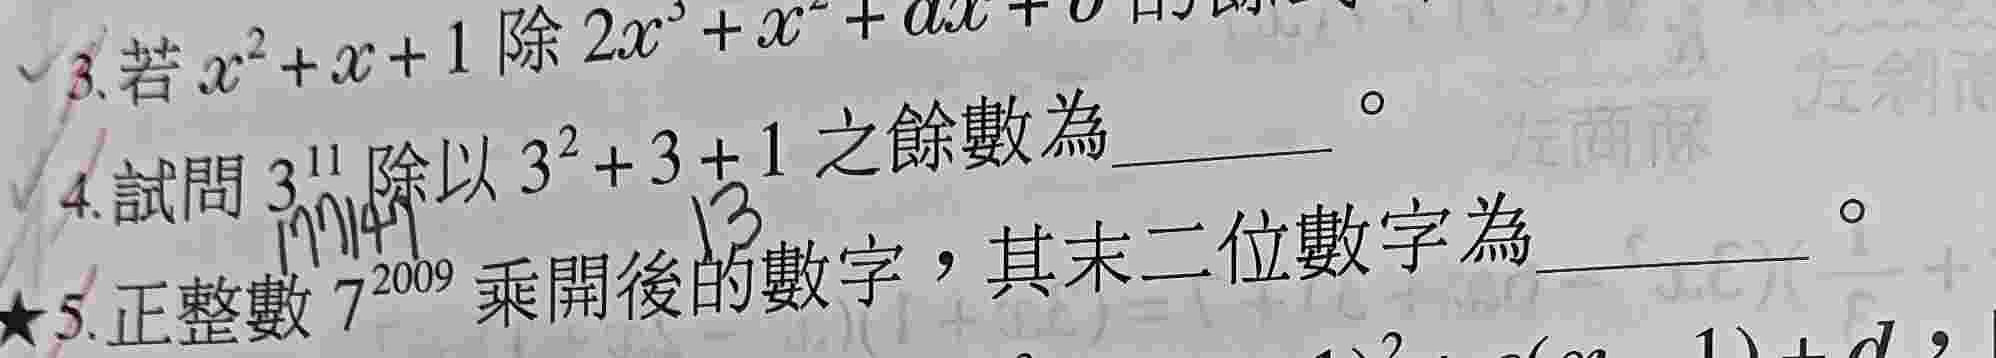 3. 若 x² + x + 1 除 2x³ + x² + ax + b 的餘式
4. 試問 3¹¹ 除以 3² + 3 + 1 之餘數為______。
177147 13
★5. 正整數 7²⁰⁰⁹ 乘開後的數字，其末二位數字為______。